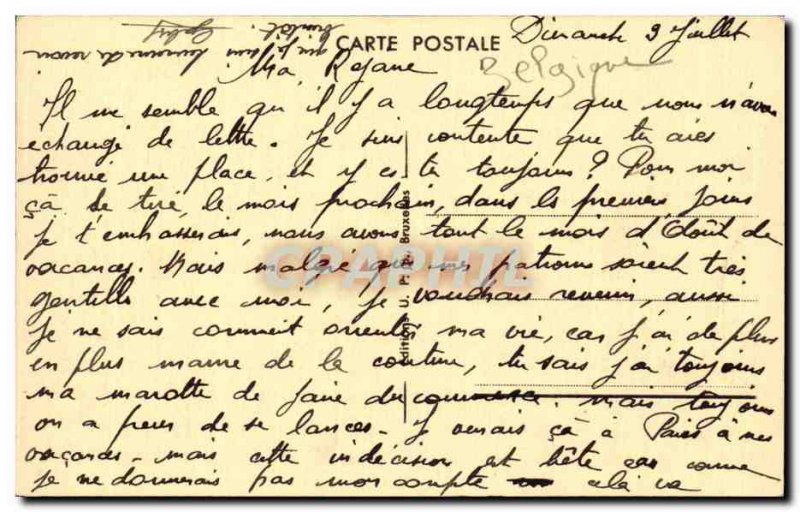 CARTE POSTALE
Dimanche 9 Juillet
Belgique
Ma Rejane
Il me semble qu'il y a longtemps que nous n'avons
échangé de lettre. Je suis contente que tu aies
trouvé une place, et y es tu toujours? Pour moi
çà se tire, le mois prochain, dans ls premiers jours
je t'embrasserais, nous avons tout le mois d'Août de
vacances. Mais malgré que mes patrons soient très
gentille avec moi, je voudrais revenir, aussi
je ne sais comment orienter ma vie, car j'ai de plus
en plus marre de la couture, tu sais j'ai toujours
ma marotte de faire du commerce. mais toujours
on a peur de se lancer. Je verrais çà à Paris à mes
vacances. mais cette indécision est bête car comme
je ne donnerais pas mon compte celà va
bientôt. Gaby
Editions J. P. Bruxelles
CPAPHIL